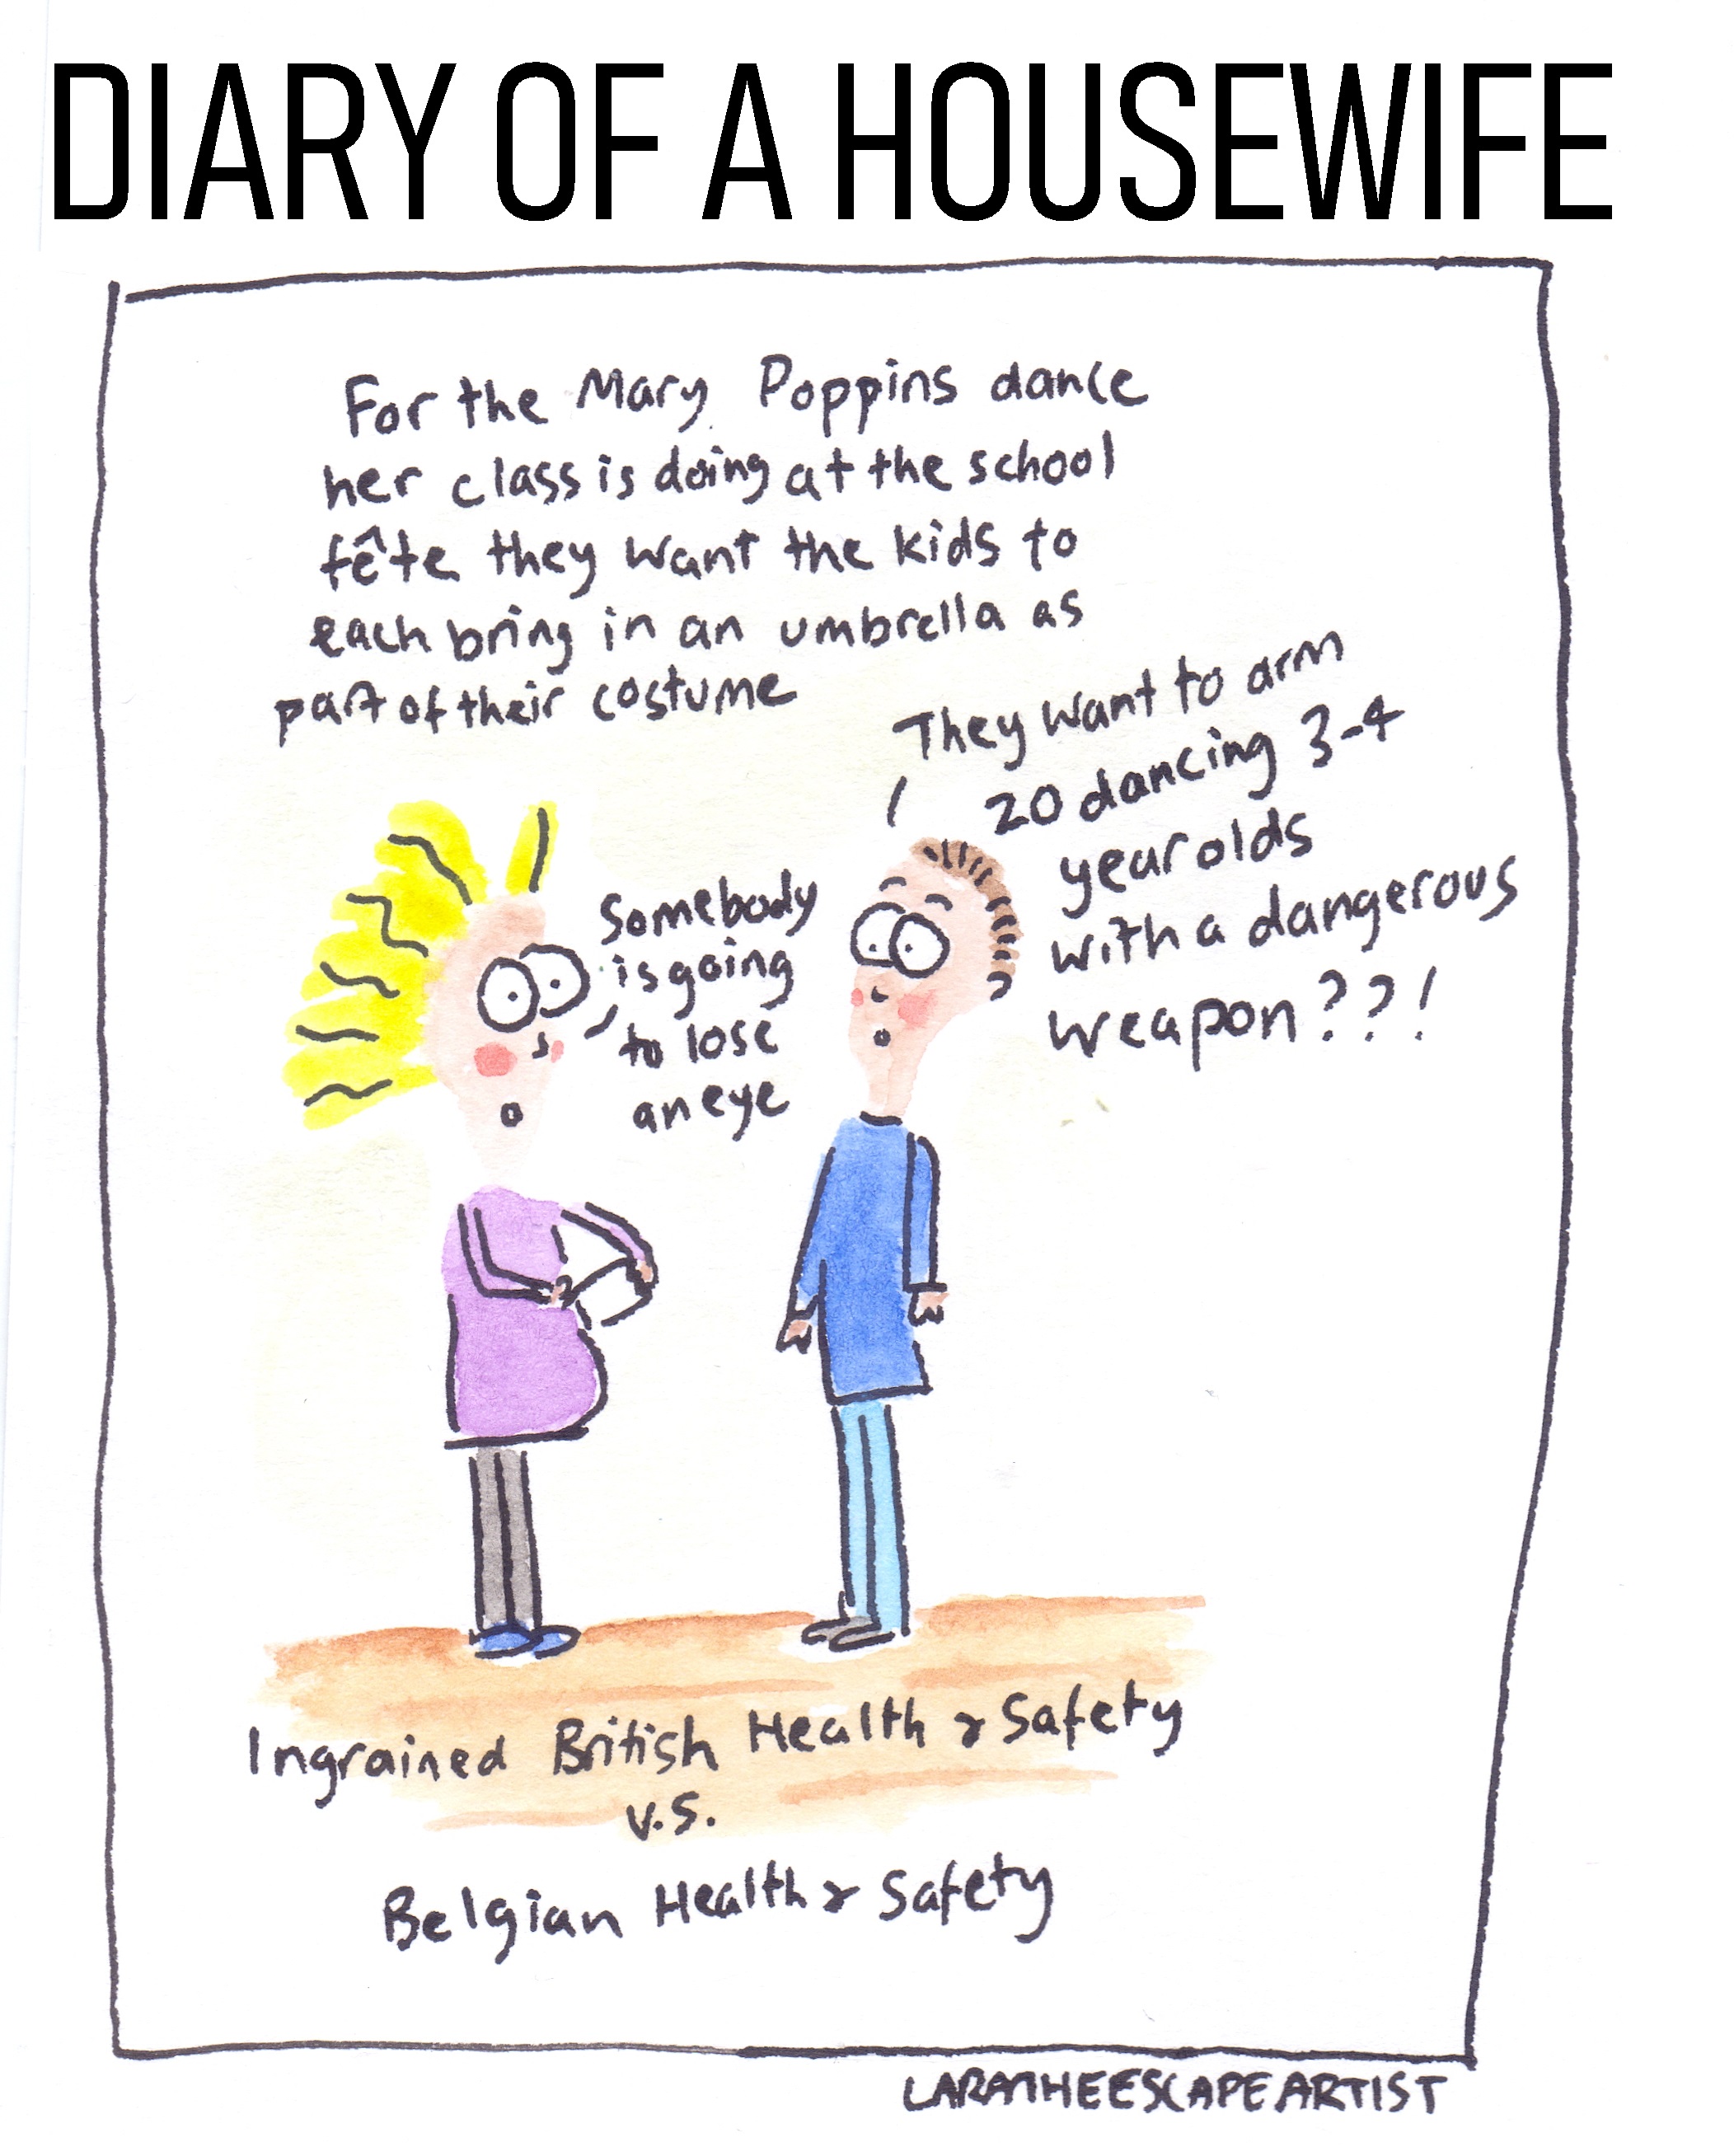 DIARY OF A HOUSEWIFE
For the Mary Poppins dance
her class is doing at the school
fête they want the kids to
each bring in an umbrella as
part of their costume
They want to arm
20 dancing 3-4
year olds
with a dangerous
weapon??!
Somebody
is going
to lose
an eye
Ingrained British Health & Safety
v.s.
Belgian Health & Safety
LARATHEESCAPEARTIST